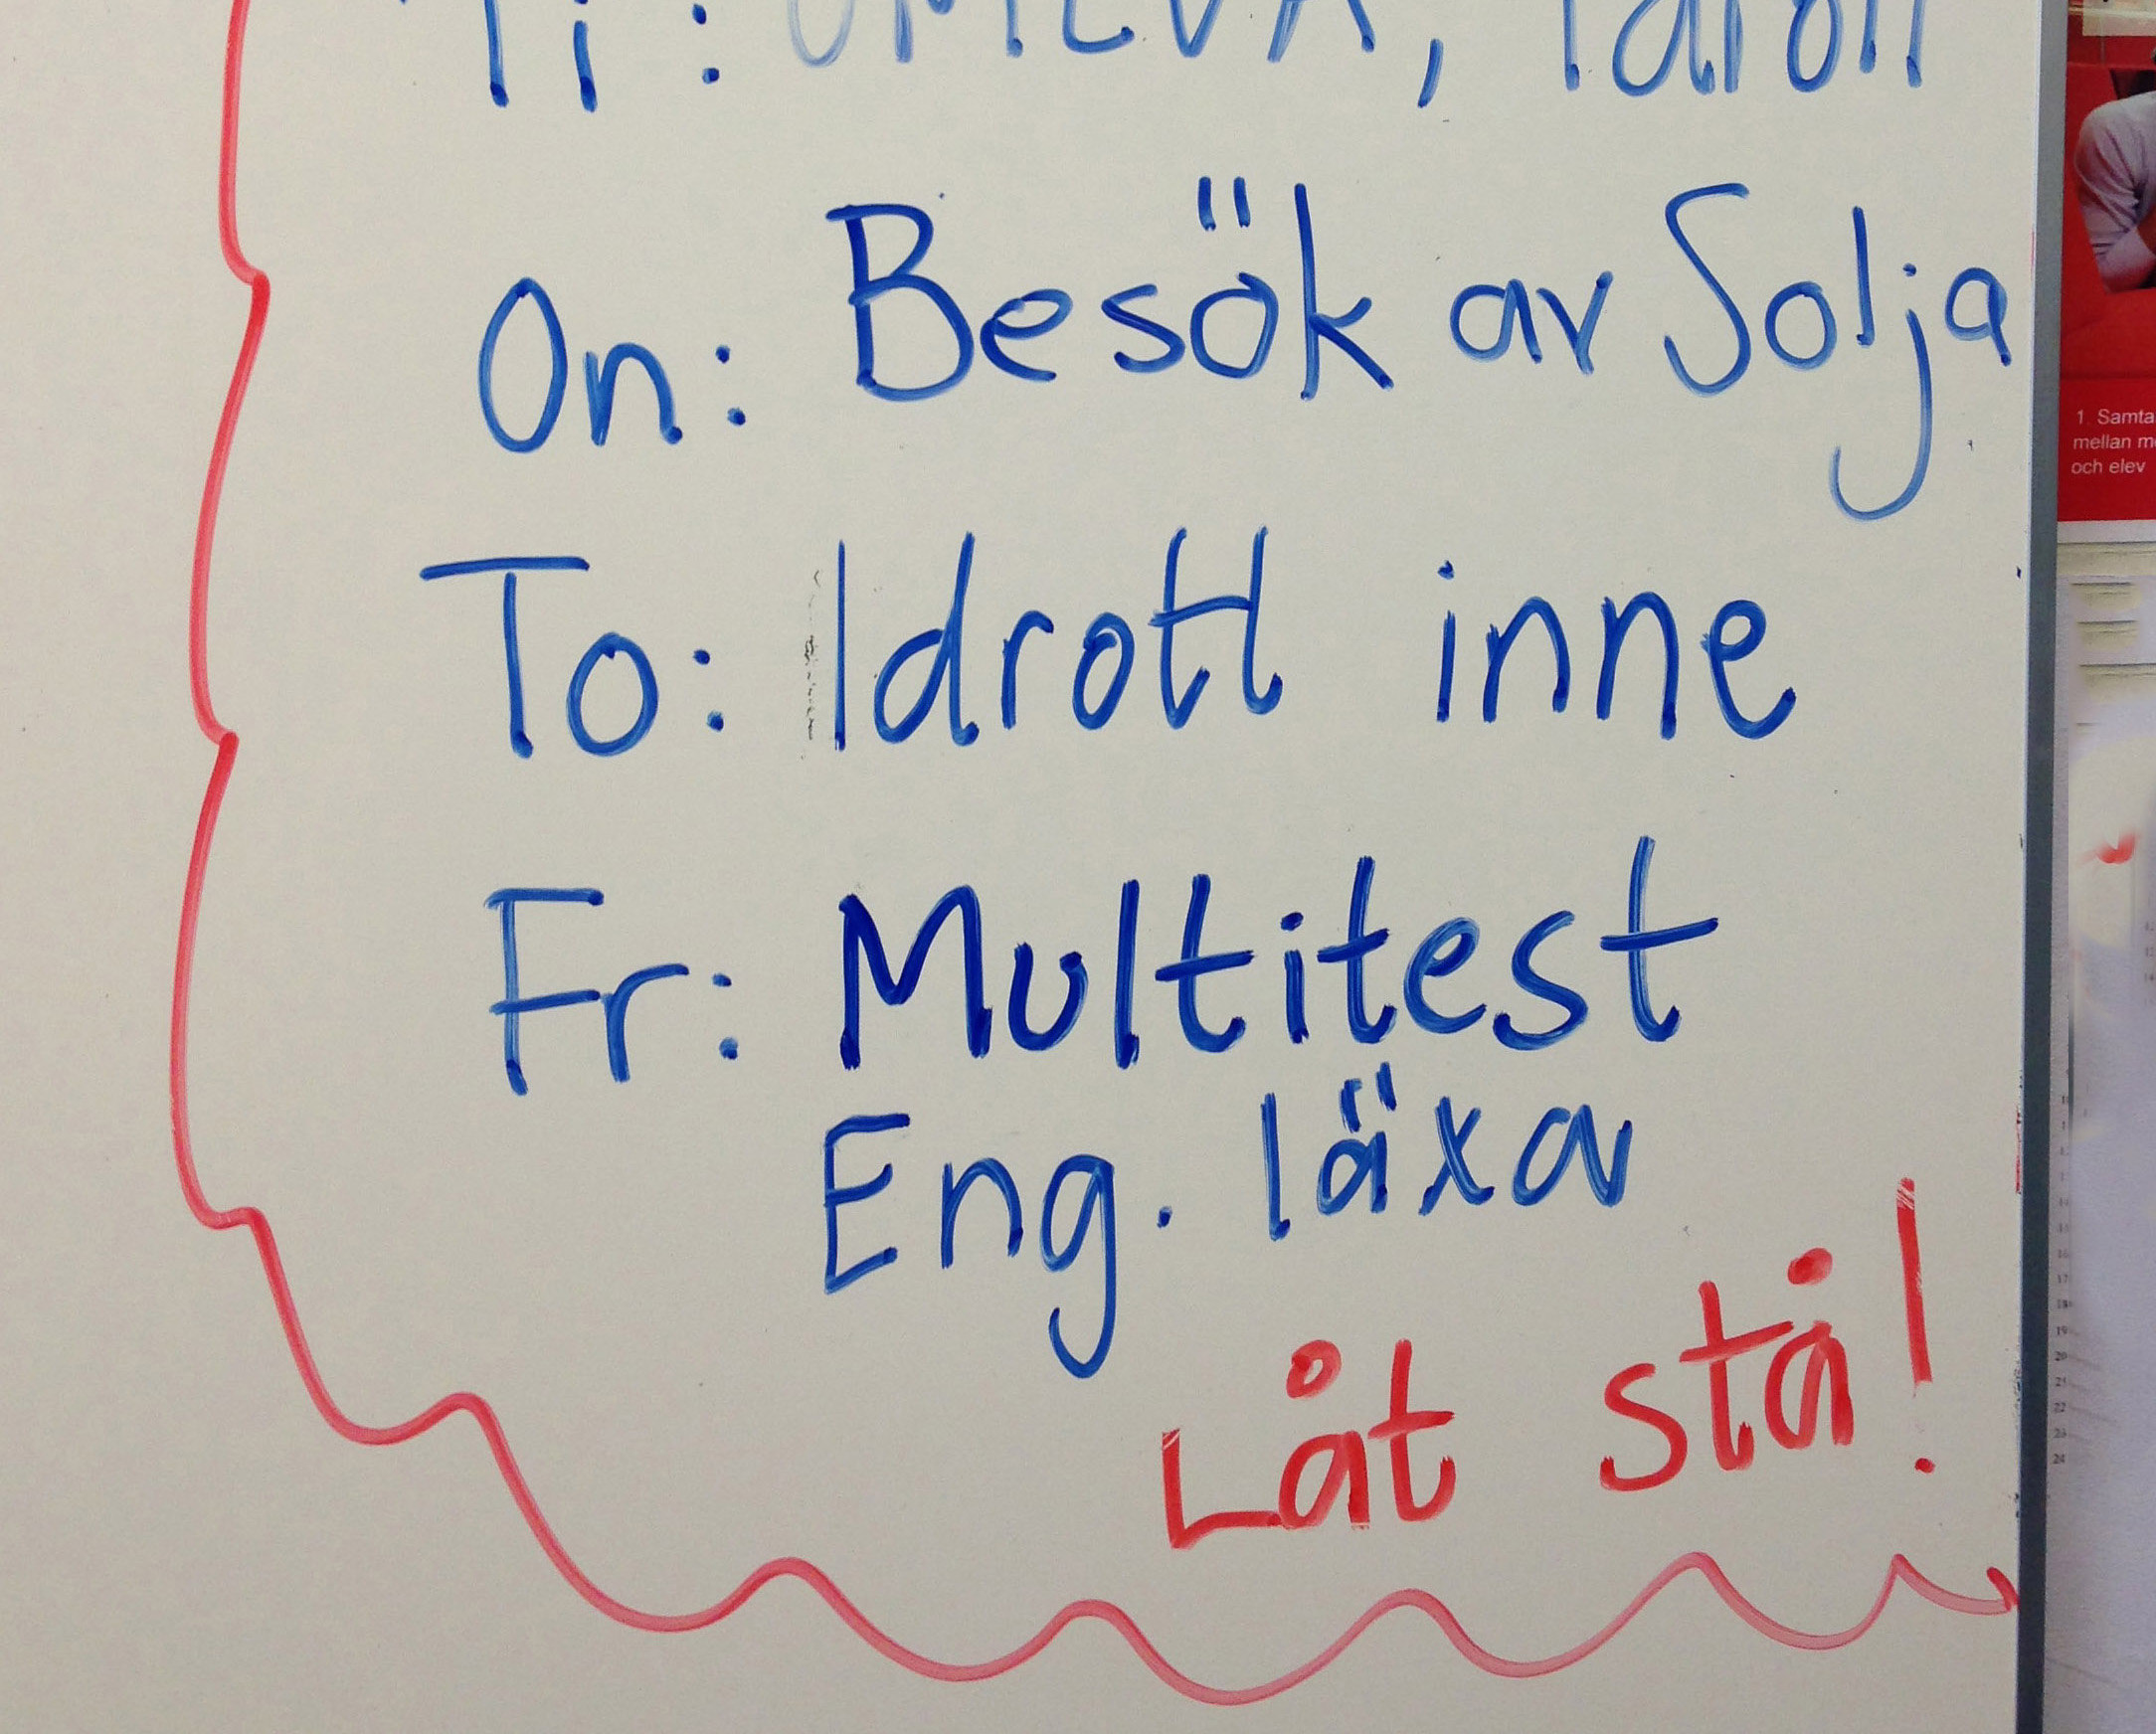 Ti: UMEVA, Idrott
On: Besök av Solja
To: Idrott inne
Fr: Multitest
Eng. läxa
Låt stå!
1. Samta
mellan m
och elev